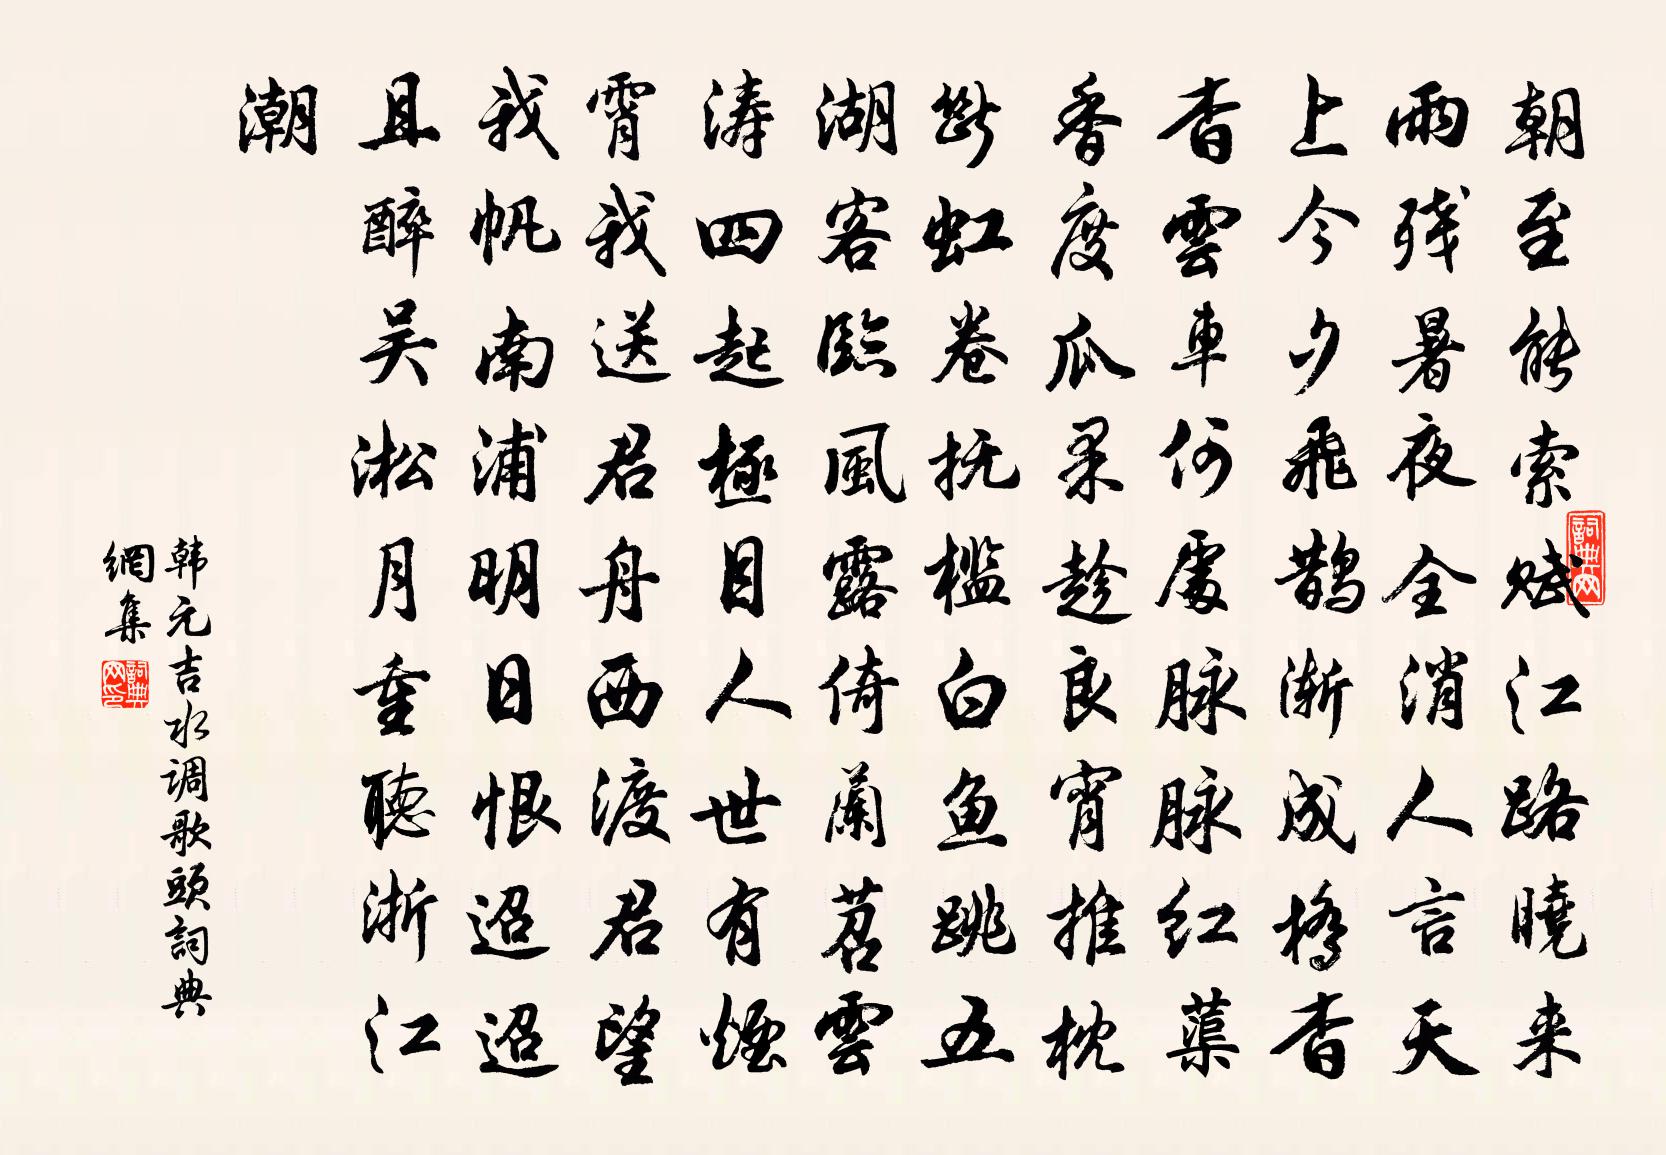 朝至能索赋江路曉来
雨残暑夜全消人言天
上今夕飛鹊渐成橋杳
杳雲車何處脉脉红蕖
香度瓜果趁良宵推枕
断虹卷抚槛白鱼跳五
湖客臨風露倚蘭苕雲
涛四起極目人世有煙
霄我送君舟西渡君望
我帆南浦明日恨迢迢
且醉吴淞月重聽浙江
潮
韩元吉水调歌頭詞典
網集
詞典网
詞典网印